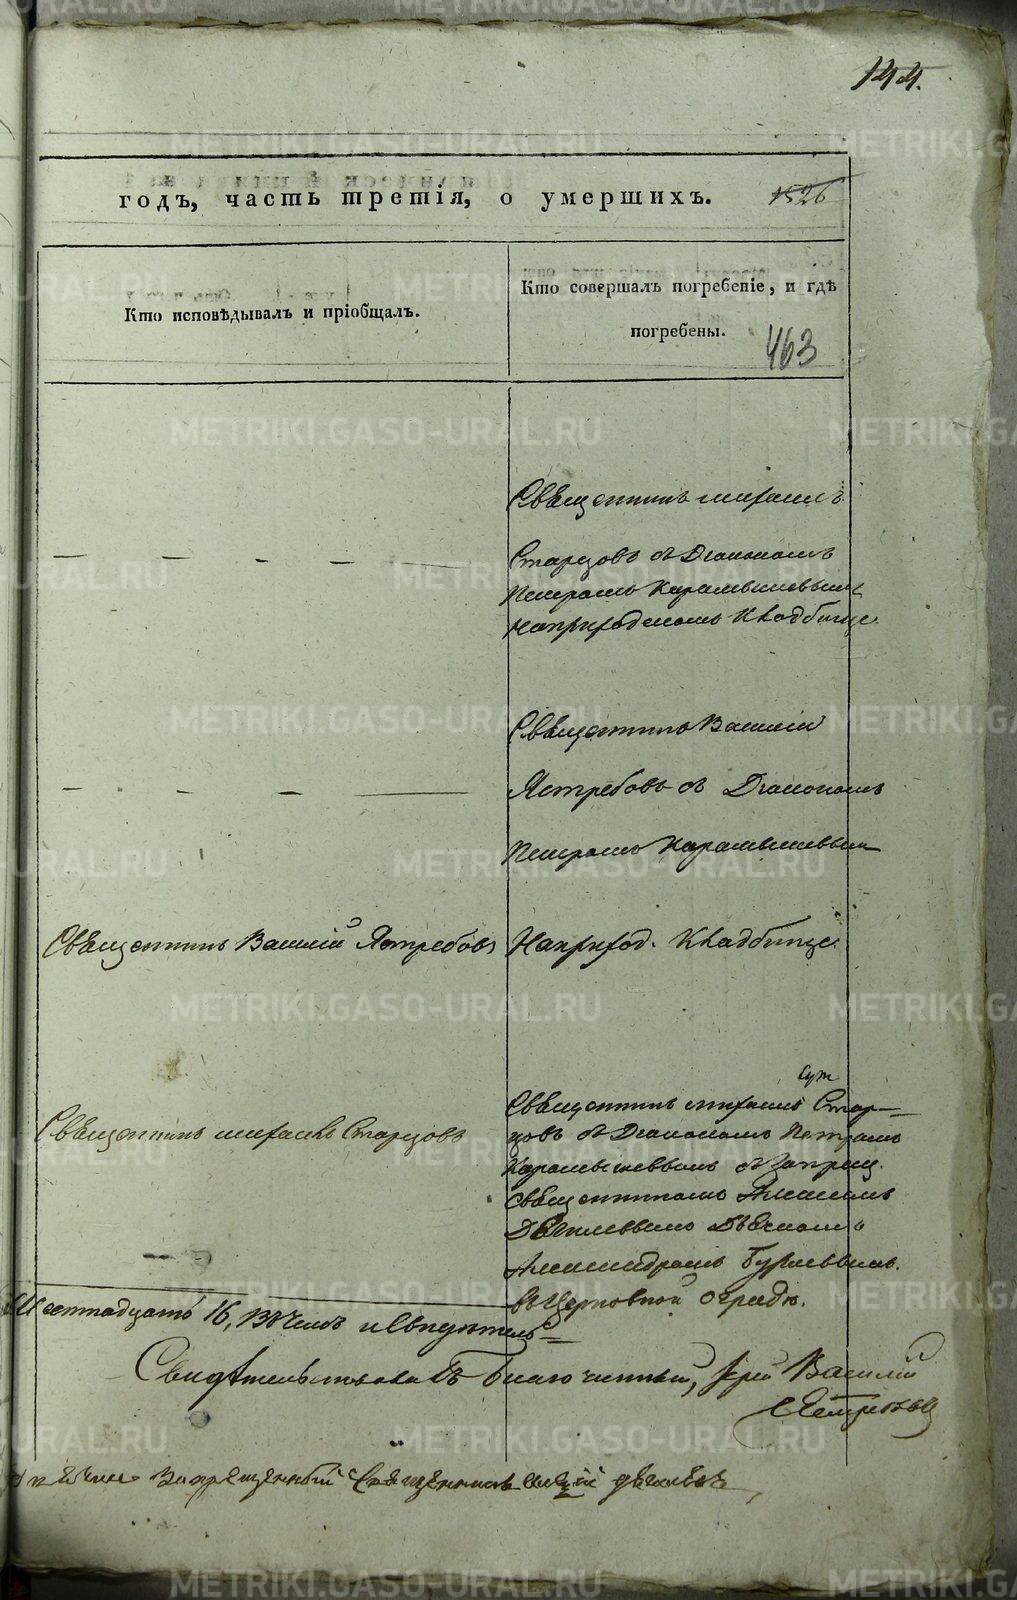 144.
годъ, часть третія, о умершихъ. 1526
Кто исповѣдывалъ и пріобщалъ.
Кто совершалъ погребеніе, и гдѣ
погребены.
463
Священникъ Михаилъ
Старцовъ съ Діакономъ
Петромъ Карамышевымъ
Наприходскомъ Кладбище.
Священникъ Василій
Ястребовъ съ Діакономъ
Петромъ Карамышевым
Священникъ Василій Ястребовъ
Наприход. Кладбище
Священникъ Михаилъ Старцовъ
Священникъ Михаилъ Стар-
цовъ съ Діакономъ Петромъ
Карамышевымъ съ Запрещ.
Священникомъ Алексіемъ
Дягилевымъ Дьячкомъ
Александромъ
въ Церковной оградѣ.
16, человекъ и Свидѣтель-
Свидѣтельствовалъ Благочинный, Іерей Василій
Ястребовъ
Запрещенный Священникъ Алексій Дягилевъ
METRIKI.GASO-URAL.RU